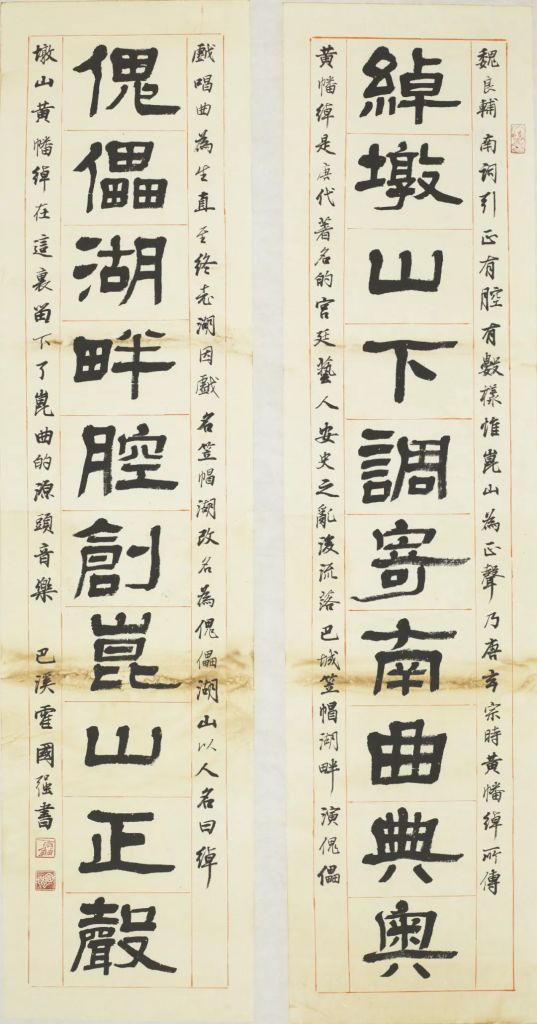 魏良輔南詞引正有腔有數樣惟崑山為正聲乃唐玄宗時黃幡綽所傳
綽墩山下調寄南曲典奧
黃幡綽是唐代著名的宮廷藝人安史之亂後流落巴城笠帽湖畔演傀儡
戲唱曲為生直至終老湖因戲名笠帽湖改名為傀儡湖山以人名曰綽
傀儡湖畔腔創崑山正聲
墩山黃幡綽在這裏留下了崑曲的源頭音樂 巴溪霍國强書